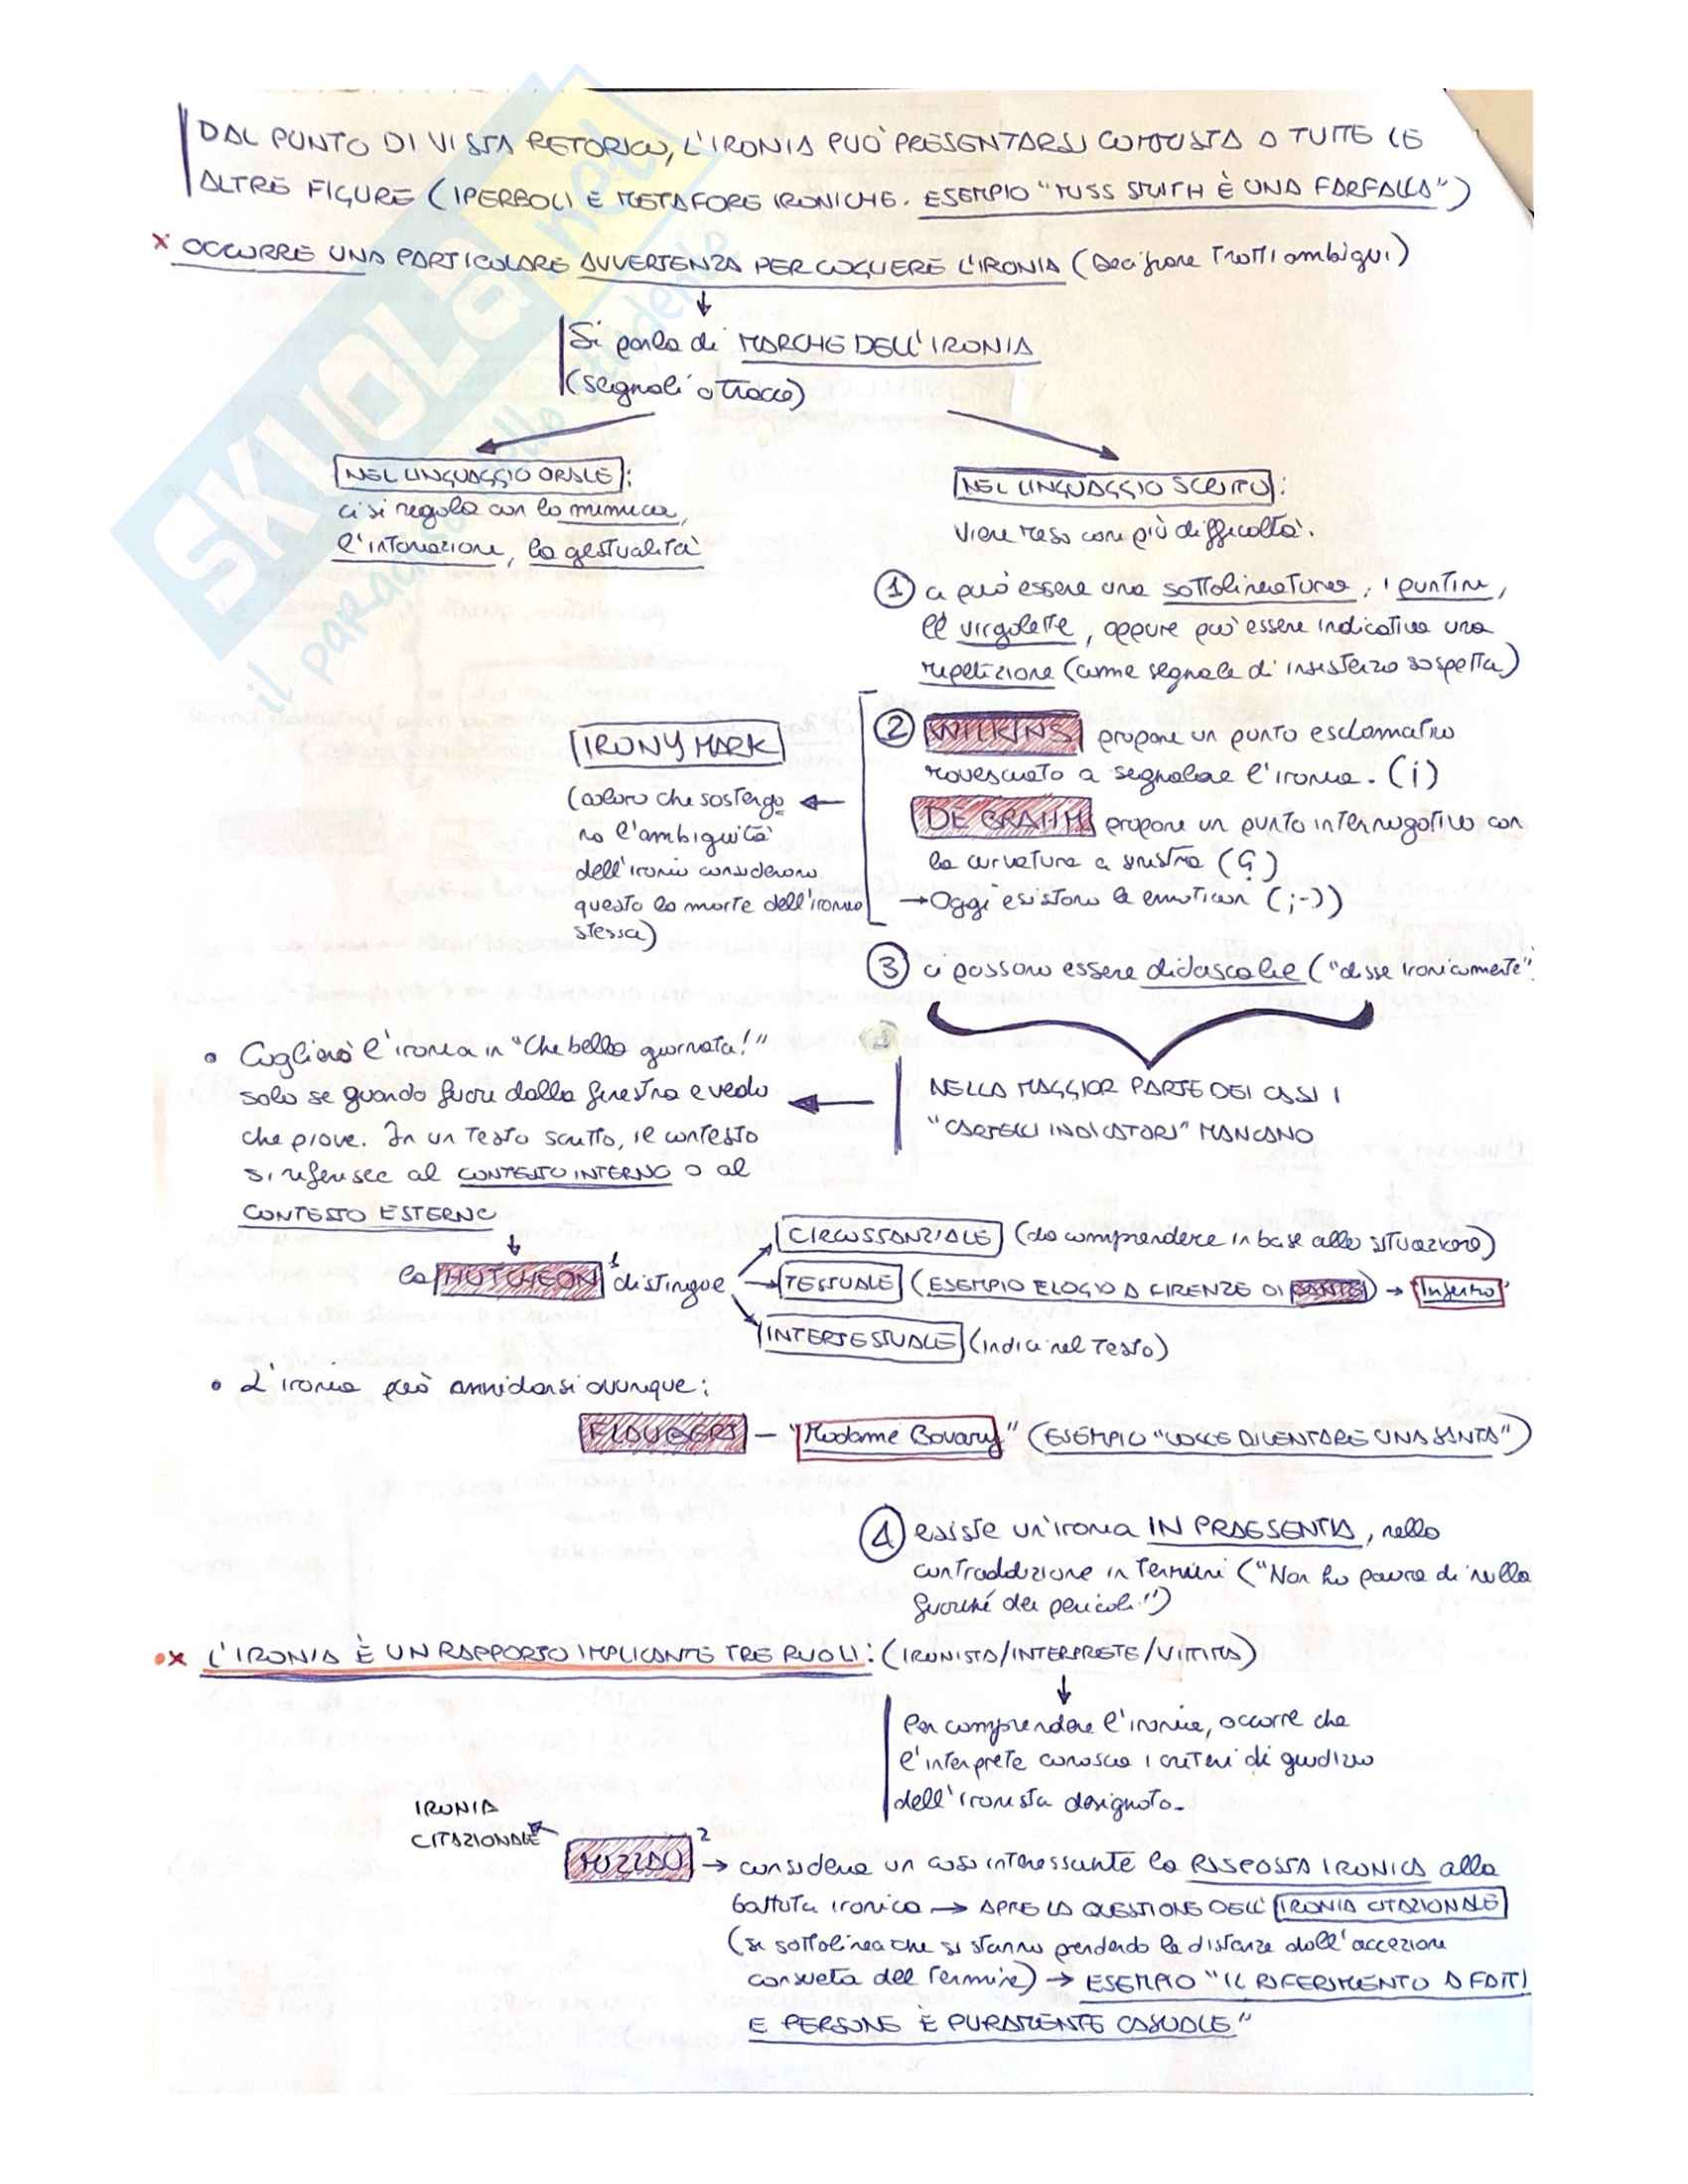 DAL PUNTO DI VISTA RETORICO, L'IRONIA PUÒ PRESENTARSI COMPOSTA A TUTTE LE
ALTRE FIGURE (IPERBOLI E METAFORE IRONICHE. ESEMPIO "MISS SMITH È UNA FARFALLA")
x OCCORRE UNA PARTICOLARE AVVERTENZA PER COGLIERE L'IRONIA (Decifrare Tratti ambigui)
Si parla di MARCHE DELL'IRONIA
(segnali o tracce)
NEL LINGUAGGIO ORALE:
ci si regola con la mimica,
l'intonazione, la gestualità
NEL LINGUAGGIO SCRITTO:
viene reso con più difficoltà.
① ci può essere una sottolineatura, i puntini,
le virgolette, oppure può essere indicativa una
repetizione (come segnale di insistenza sospetta)
② WILKINS propone un punto esclamativo
rovesciato a segnalare l'ironia. (¡)
DE BRAHM propone un punto interrogativo con
la curvatura a sinistra (؟)
→ Oggi esistono le emoticon (;-))
IRONY MARK
(coloro che sostengo
no l'ambiguità
dell'ironia considerano
questo la morte dell'ironia
stessa)
③ ci possono essere didascalie ("disse ironicamente"
NELLA MAGGIOR PARTE DEI CASI I
"CARTELLI INDICATORI" MANCANO
• Coglierò l'ironia in "Che bella giornata!"
solo se guardo fuori dalla finestra e vedo
che piove. In un testo scritto, il contesto
si riferisce al CONTESTO INTERNO o al
CONTESTO ESTERNO
la HUTCHEON¹ distingue
CIRCOSTANZIALE (da comprendere in base alla situazione)
TESTUALE (ESEMPIO ELOGIO A FIRENZE DI DANTE) → Inferno
INTERTESTUALE (indici nel testo)
• L'ironia può annidarsi ovunque:
FLAUBERT – "Madame Bovary" (ESEMPIO "VOLLE DIVENTARE UNA SANTA")
④ esiste un'ironia IN PRAESENTIA, nella
contraddizione in termini ("Non ho paura di nulla
fuorché dei pericoli")
•x L'IRONIA È UN RAPPORTO IMPLICANTE TRE RUOLI: (IRONISTA/INTERPRETE/VITTIMA)
Per comprendere l'ironia, occorre che
l'interprete conosca i criteri di giudizio
dell'ironista designato.
IRONIA
CITAZIONALE
MIZZAU² → considera un caso interessante la RISPOSTA IRONICA alla
battuta ironica → APRE LA QUESTIONE DELL'IRONIA CITAZIONALE
(si sottolinea che si stanno prendendo le distanze dall'accezione
consueta del termine) → ESEMPIO "IL RIFERIMENTO A FATTI
E PERSONE È PURAMENTE CASUALE"
SKUOLA.net
il paradiso dello studente